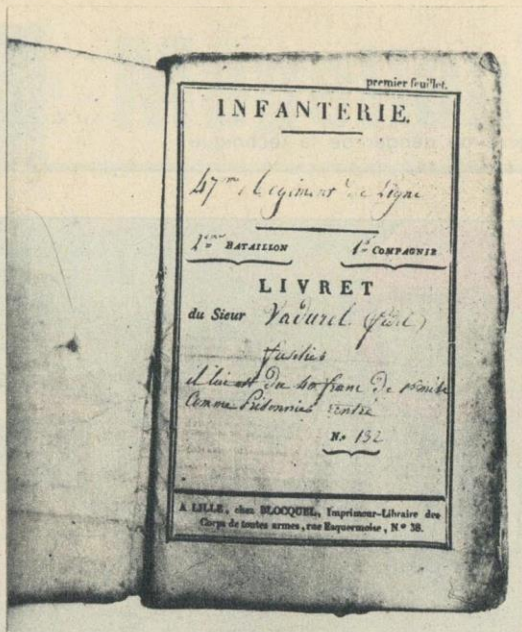 premier feuillet.
INFANTERIE.
47me Regiment de Ligne
2eme BATAILLON 1re COMPAGNIE
LIVRET
du Sieur Vadurel (fidel)
fusilier
il lui est du 40 franc De
Comme Prisonnier rentré
No 132
A LILLE, chez BLOCQUEL, Imprimeur-Libraire des
Corps de toutes armes, rue Esquermoise, No 38.